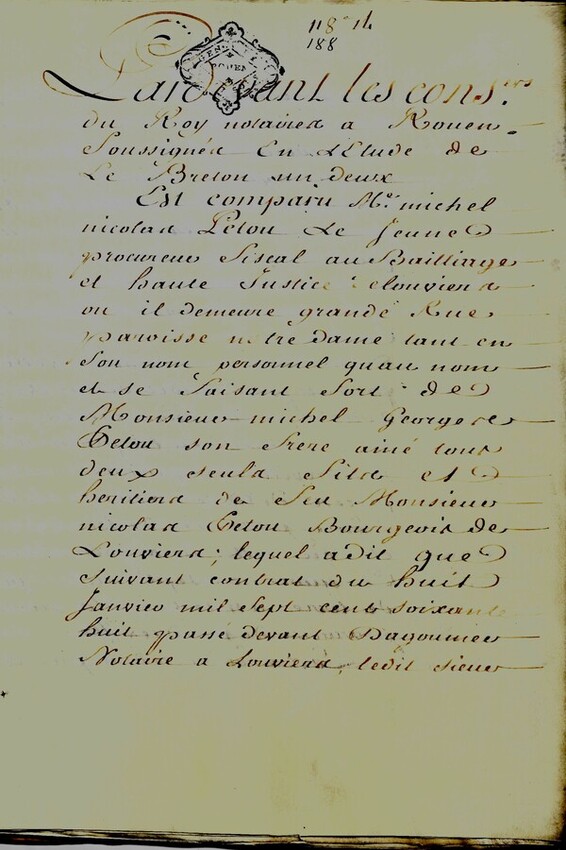 118 14
188
GEN DE
ROUEN
Pardevant les cons.ers
du Roy notaires a Rouen
Soussignés En l'Etude de
Le Breton un deux
Est comparu Me. michel
nicolas Petou Le Jeune
procureur fiscal au Bailliage
et haute Justice de louviers
ou il demeure grande Rue
paroisse notre dame tant en
Son nom personnel quau nom
et se faisant fort de
Monsieur michel George
Petou son frere ainé tous
deux seuls fils et
heritiers de feu Monsieur
nicolas Petou Bourgeois de
Louviers; lequel a dit que
suivant contrat du huit
Janvier mil sept cent soixante
huit passé devant Dagoumer
Notaire a Louviers, ledit sieur